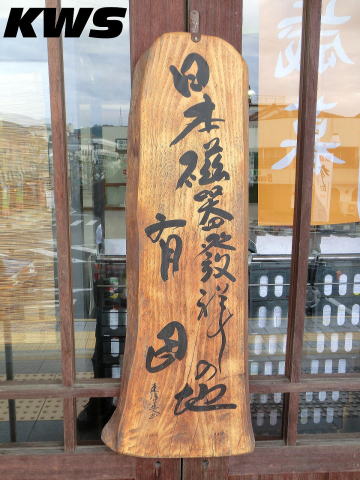 KWS
日本磁器發祥の地
有田